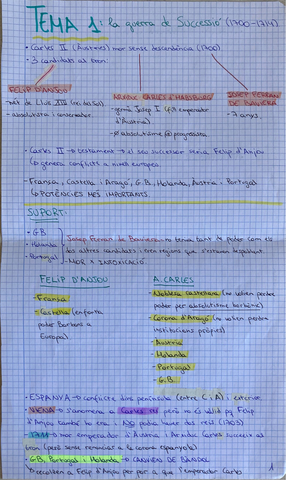 TEMA 1: la guerra de Successió (1700-1714)
• Carles II (Austries) mor sense descendència (1700)
• 3 candidats al tron:
FELIP D'ANJOU
ARXIDUC CARLES D'HABSBURG
JOSEP FERRAN DE BAVIERA
- nét de Lluís XIV (rei del Sol)
- absolutista i conservador
- germà Josep I (emperador d'Àustria)
- absolutisme, progressista
- 7 anys.
• Carles II → testament → el seu successor seria Felip d'Anjou
↳ genera conflicte a nivell europeu
- França, Castella i Aragó, G.B, Holanda, Àustria i Portugal
↳ POTÈNCIES MÉS IMPORTANTS.
SUPORT:
• G.B
• Holanda
• Portugal
Josep Ferran de Baviera: no tenia tant de poder com els
altres candidats
- MOR X INTOXICACIÓ
FELIP D'ANJOU
A. CARLES
- França
- Castella (enforta
poder Borbons a
Europa)
- Noblesa castellana (no volien perdre
poder per absolutisme borbònic)
- Corona d'Aragó (no volien perdre
institucions pròpies)
- Àustria
- Holanda
- Portugal
- G.B
• ESPANYA → conflicte dins península (entre C i A) i exterior.
• VIENA → s'anomena a Carles III però no és vàlid pq Felip
d'Anjou també ho era i no podia haver dos reis (1703)
• 1711 → mor emperador d'Àustria i Arxiduc Carles succeeix al
tron (però sense renunciar a la corona espanyola)
• GB, Portugal i Holanda → CANVIEN DE BÀNDOL
↳ recolzen a Felip d'Anjou per por a que l'emperador Carles
1